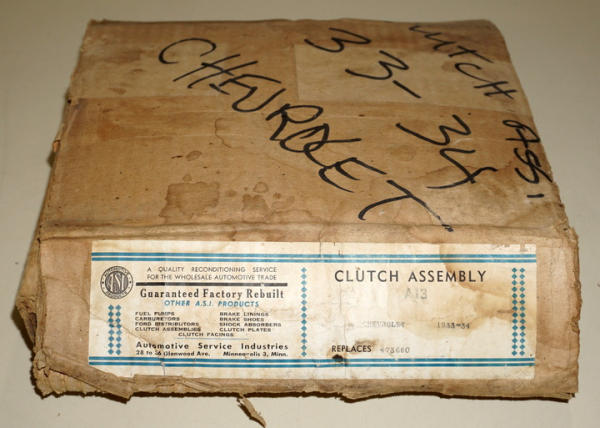 CLUTCH ASS.
33-34
CHEVROLET
ASI
A QUALITY RECONDITIONING SERVICE
FOR THE WHOLESALE AUTOMOTIVE TRADE
Guaranteed Factory Rebuilt
OTHER A.S.I. PRODUCTS
FUEL PUMPS BRAKE LININGS
CARBURETORS BRAKE SHOES
FORD DISTRIBUTORS SHOCK ABSORBERS
CLUTCH ASSEMBLIES CLUTCH PLATES
CLUTCH FACINGS
Automotive Service Industries
28 to 36 Glenwood Ave. Minneapolis 3, Minn.
CLUTCH ASSEMBLY
A13
CHEVROLET 1933-34
REPLACES 473660